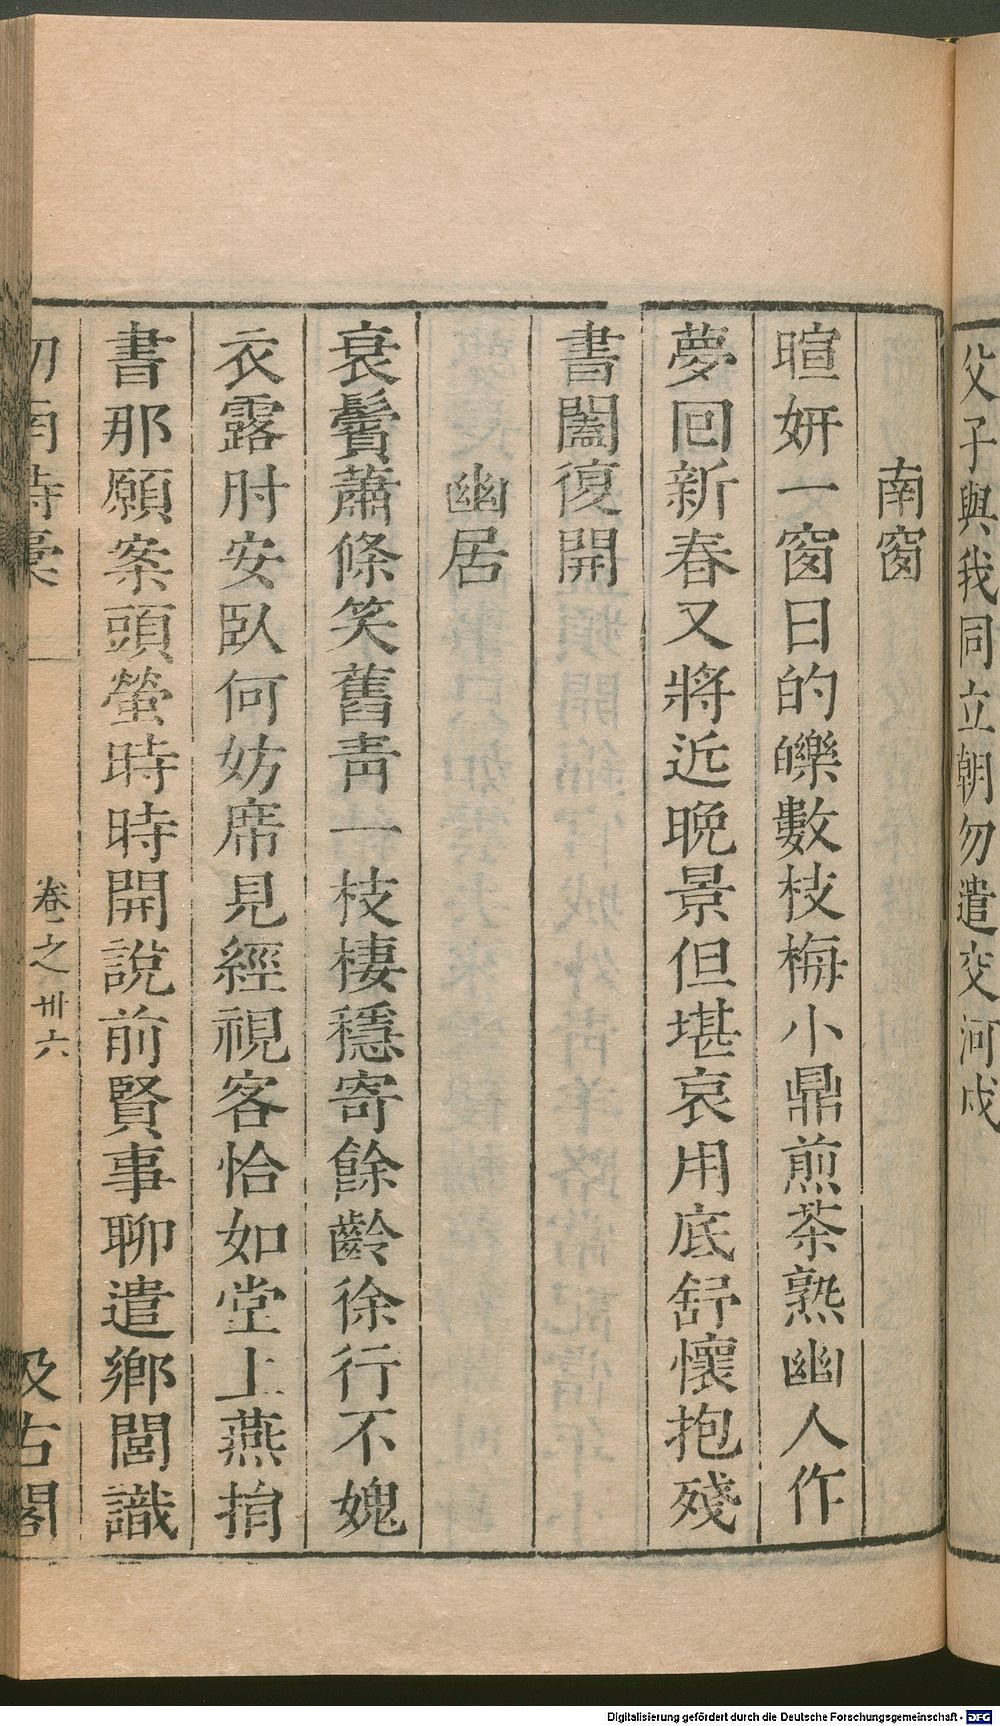 父子與我同立朝勿遣交河戍
南窗
暄妍一窗日的皪數枝梅小鼎煎茶熟幽人作
夢回新春又將近晚景但堪哀用底舒懷抱殘
書闔復開
幽居
衰鬢蕭條笑舊青一枝棲穩寄餘齡徐行不媿
衣露肘安臥何妨席見經視客恰如堂上燕捐
書那願案頭螢時時開說前賢事聊遣鄉閭識
劒南詩稾
卷之卅六
汲古閣
Digitalisierung gefördert durch die Deutsche Forschungsgemeinschaft - DFG